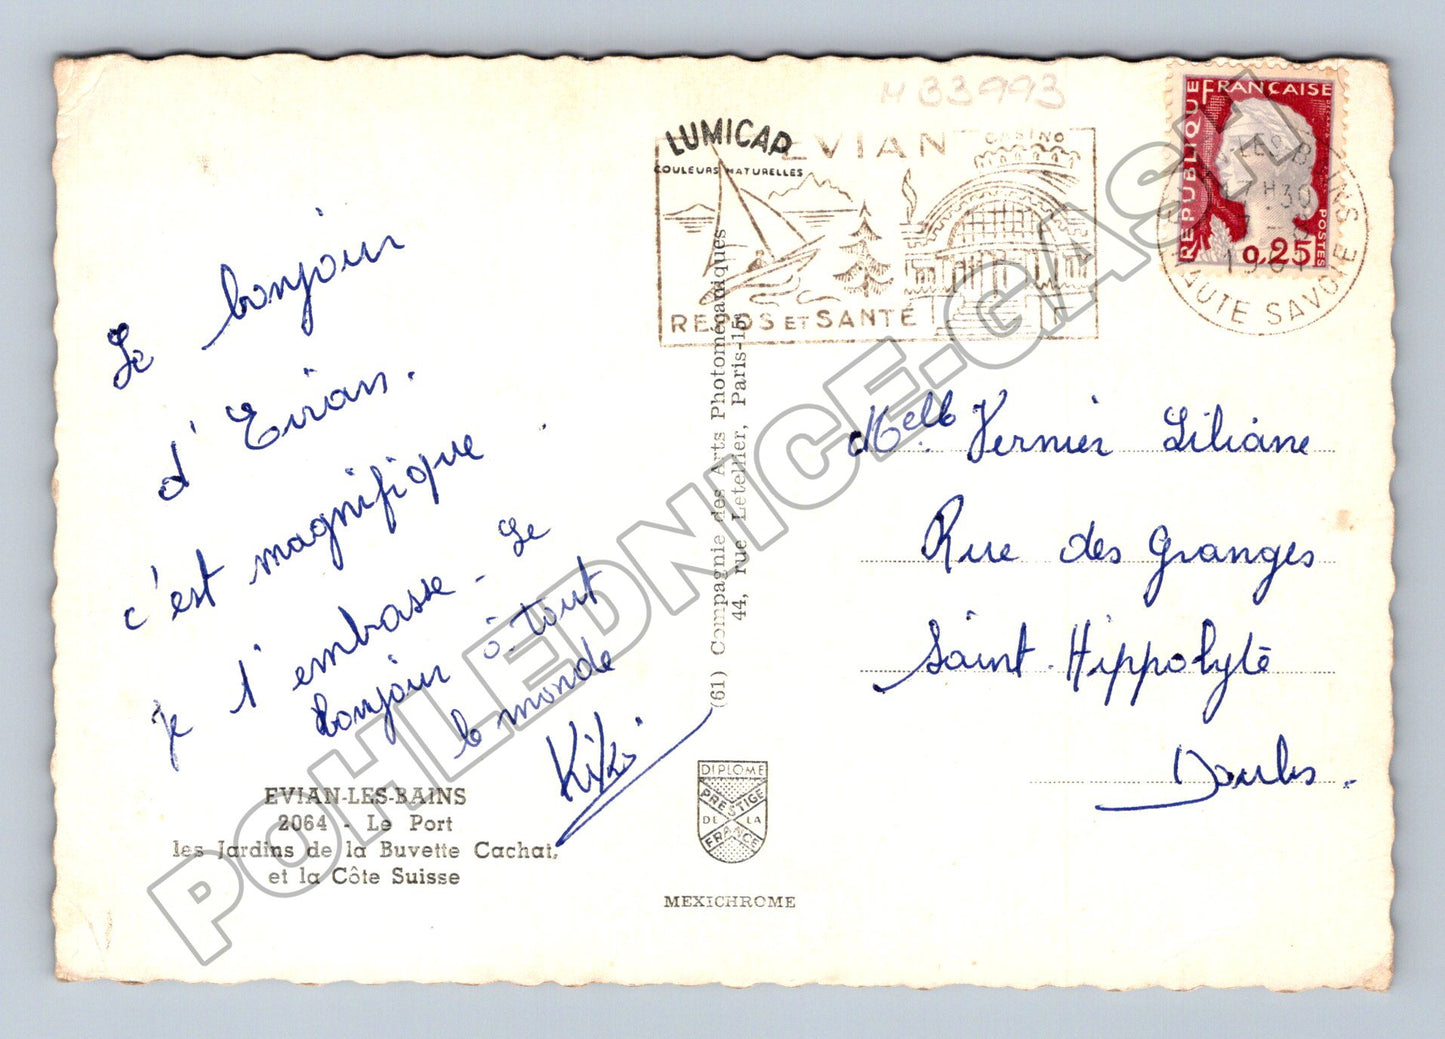 Le bonjour
d'Evian.
c'est magnifique
je t'embrasse - Le
bonjour à tout
le monde
Kiki
EVIAN-LES-BAINS
2064 - Le Port
les Jardins de la Buvette Cachat,
et la Côte Suisse
LUMICAP
COULEURS NATURELLES
(61) Compagnie des Arts Photomécaniques
44, rue Letellier, Paris-15e
DIPLOME
PRESTIGE
DE LA
FRANCE
MEXICHROME
H33993
EVIAN
CASINO
REPOS ET SANTÉ
RÉPUBLIQUE FRANÇAISE
POSTES
0,25
LES BAINS
17H30
HAUTE SAVOIE
Melle Vernier Liliane
Rue des Granges
Saint-Hippolyte
Doubs.
POHLEDNICE-GASH